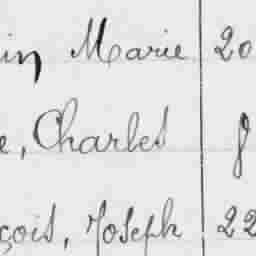 in Marie 20
e, Charles 8
çois, Joseph 22